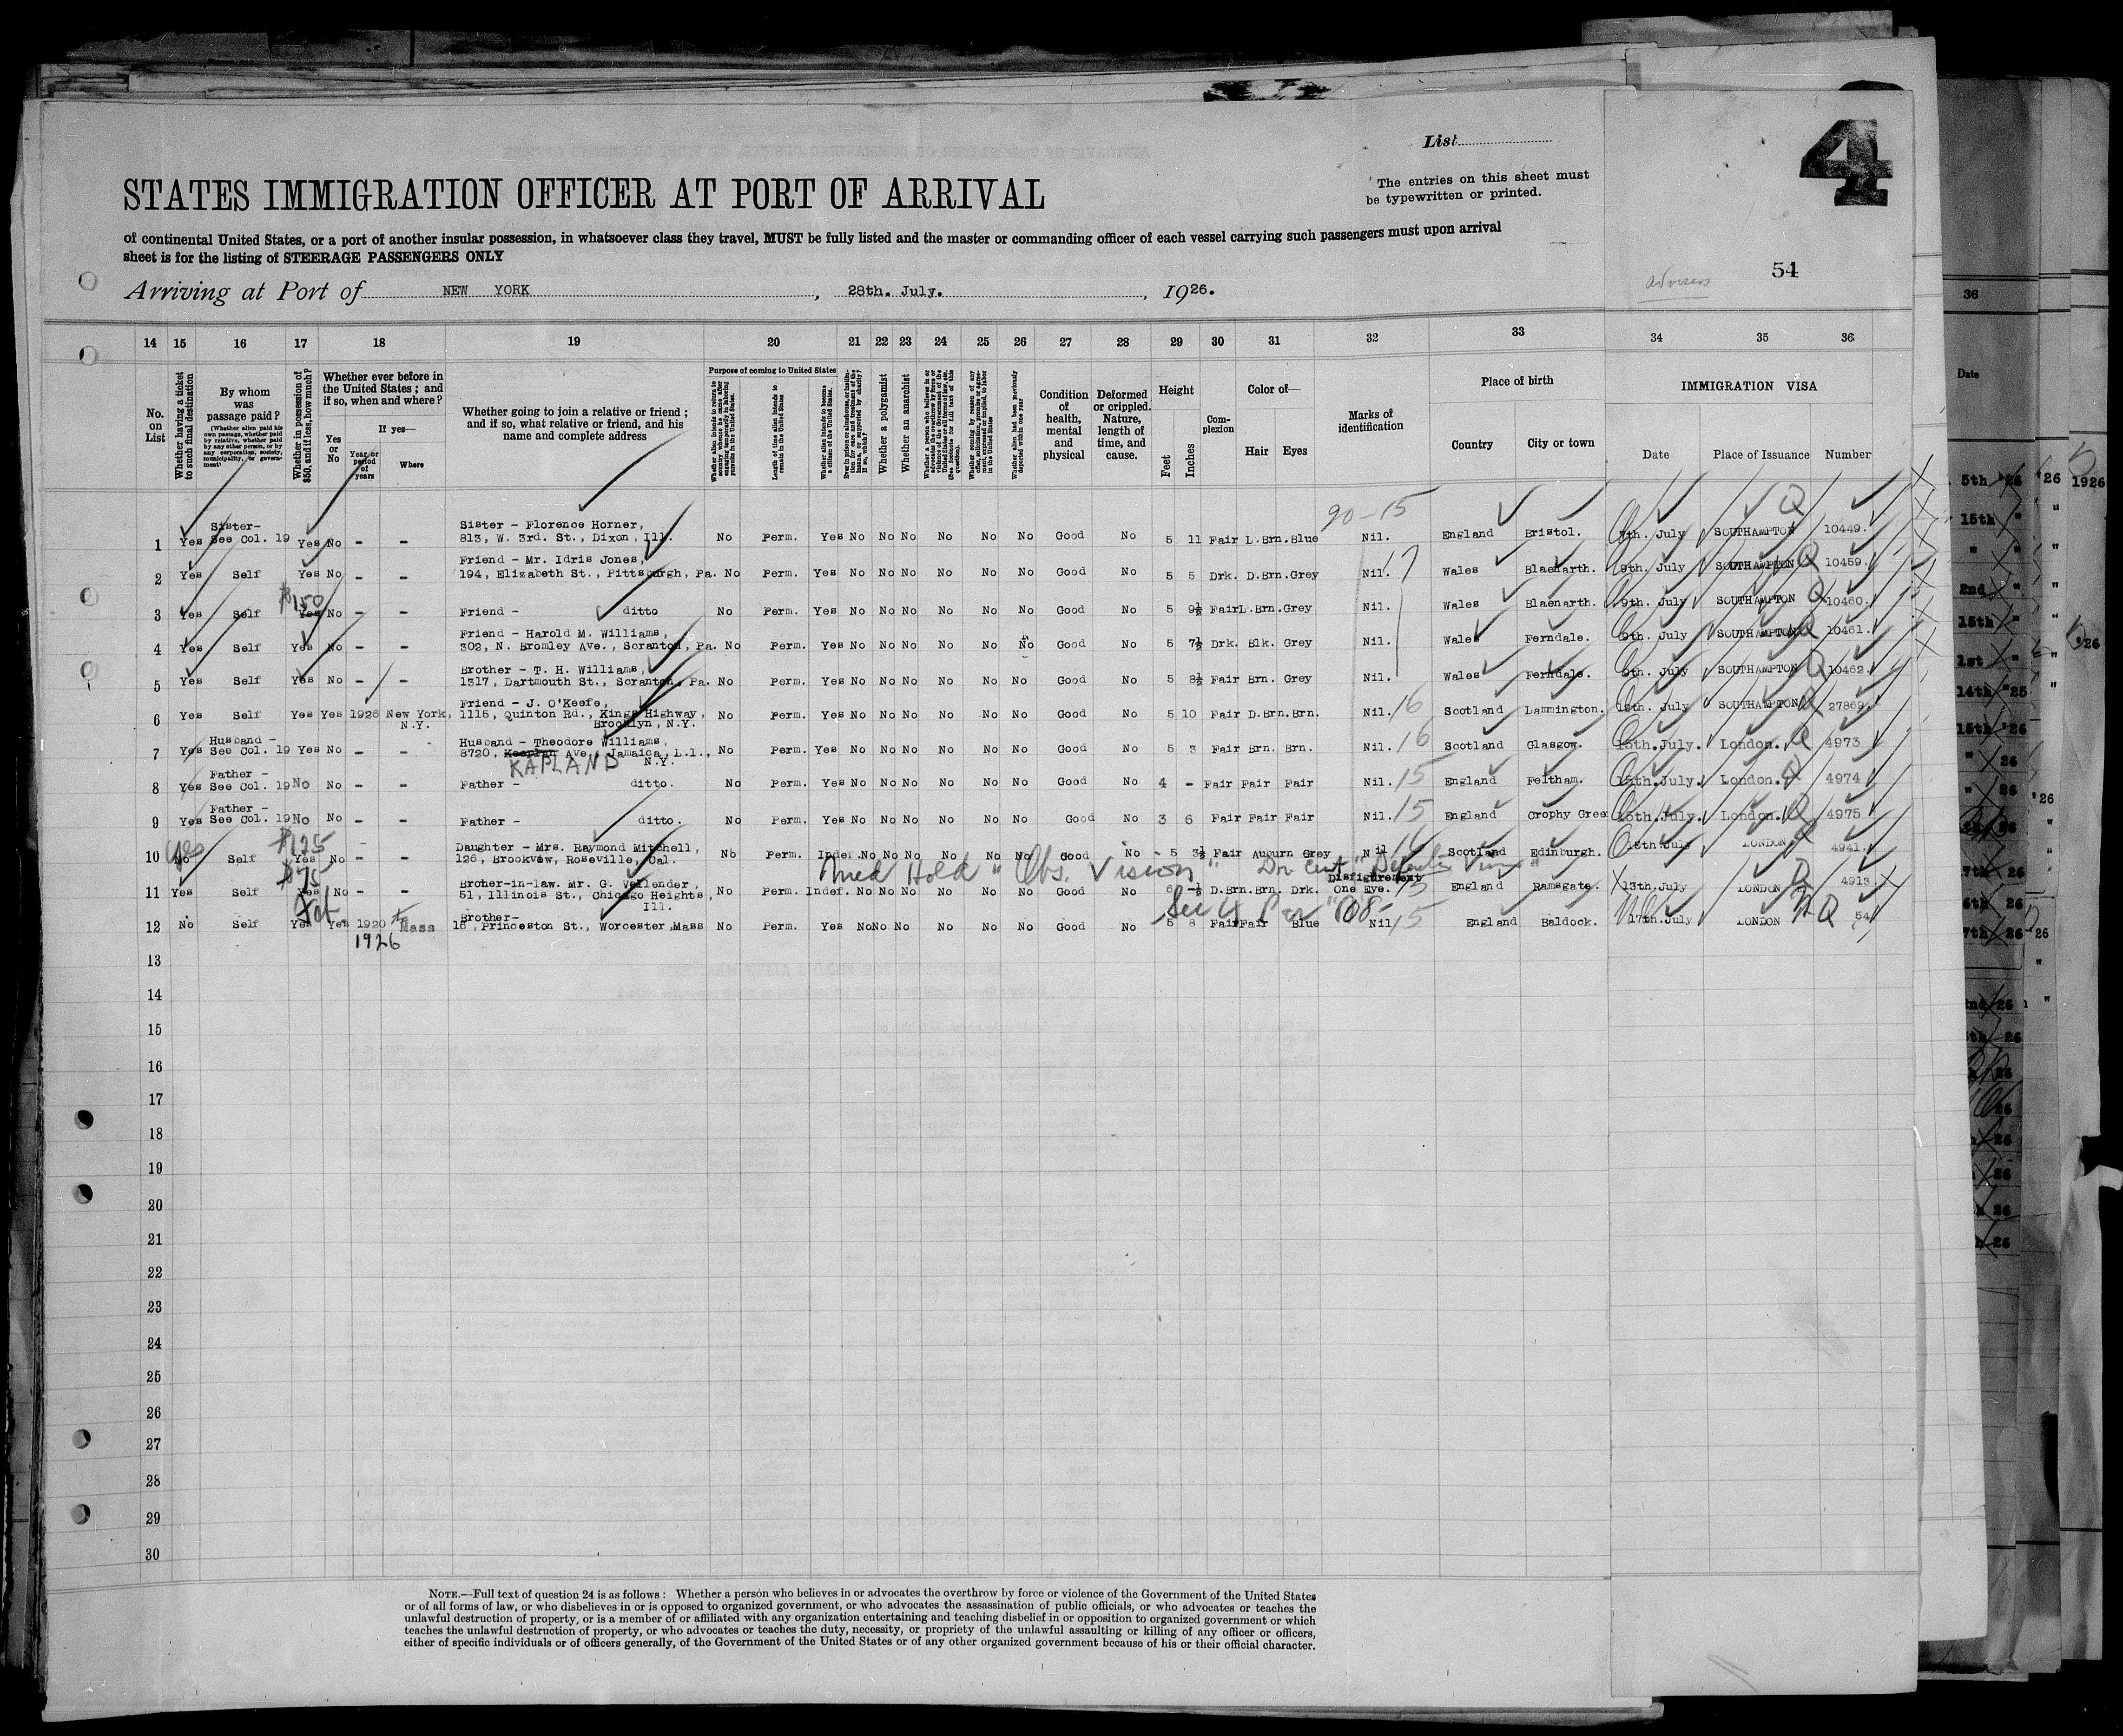 4
List
STATES IMMIGRATION OFFICER AT PORT OF ARRIVAL
The entries on this sheet must
be typewritten or printed.
of continental United States, or a port of another insular possession, in whatsoever class they travel, MUST be fully listed and the master or commanding officer of each vessel carrying such passengers must upon arrival
sheet is for the listing of STEERAGE PASSENGERS ONLY
54
Arriving at Port of NEW YORK, 28th. July. , 1926.
14 15 16 17 18 19 20 21 22 23 24 25 26 27 28 29 30 31 32 33 34 35 36
No. on List
Whether having a ticket to such final destination
By whom was passage paid?
(Whether alien paid his own passage, whether paid by relative, whether paid by any other person, or by any corporation, society, municipality, or government)
Whether in possession of $50, and if less, how much?
Whether ever before in the United States; and if so, when and where?
Yes or No
If yes—
Year or period of years
Where
Whether going to join a relative or friend; and if so, what relative or friend, and his name and complete address
Purpose of coming to United States
Length of time alien intends to remain in the United States
Whether alien intends to become a citizen of the United States
Whether a polygamist
Whether an anarchist
Whether alien had been previously deported within one year
Condition of health, mental and physical
Deformed or crippled. Nature, length of time, and cause.
Height
Feet
Inches
Complexion
Color of—
Hair Eyes
Marks of identification
Place of birth
Country
City or town
IMMIGRATION VISA
Date
Place of Issuance
Number
90-15
1 Yes Sister- See Col. 19 Yes No - - Sister - Florence Horner, 813, W. 3rd. St., Dixon, Ill. No Perm. Yes No No No No No No Good No 5 11 Fair L.Brn. Blue Nil. England Bristol. 9th. July SOUTHAMPTON Q 10449.
2 Yes Self Yes No - - Friend - Mr. Idris Jones, 194, Elizabeth St., Pittsburgh, Pa. No Perm. Yes No No No No No No Good No 5 5 Drk. D.Brn. Grey Nil. 17 Wales Blaenarth. 9th. July SOUTHAMPTON Q 10459.
3 Yes Self $150 Yes No - - Friend - ditto No Perm. Yes No No No No No No Good No 5 9½ Fair L.Brn. Grey Nil. Wales Blaenarth. 9th. July SOUTHAMPTON Q 10460.
4 Yes Self Yes No - - Friend - Harold M. Williams, 302, N. Bromley Ave., Scranton, Pa. No Perm. Yes No No No No No No Good No 5 7½ Drk. Blk. Grey Nil. Wales Ferndale. 9th. July SOUTHAMPTON Q 10461.
5 Yes Self Yes No - - Brother - T. H. Williams, 1317, Dartmouth St., Scranton, Pa. No Perm. Yes No No No No No No Good No 5 8½ Fair Brn. Grey Nil. Wales Ferndale. 9th. July SOUTHAMPTON Q 10462.
6 Yes Self Yes Yes 1926 New York, N.Y. Friend - J. O'Keefe, 1115, Quinton Rd., Kings Highway, Brooklyn, N.Y. No Perm. Yes No No No No No No Good No 5 10 Fair D.Brn. Brn. Nil. 16 Scotland Lammington. July SOUTHAMPTON Q 27869.
7 Yes Husband - See Col. 19 Yes No - - Husband - Theodore Williams, 8720, KAPLAND Ave., Jamaica, L.I., N.Y. No Perm. Yes No No No No No No Good No 5 3 Fair Brn. Brn. Nil. 16 Scotland Glasgow. 15th. July. London. Q 4973
8 Yes Father - See Col. 19 No No - - Father - ditto. No Perm. Yes No No No No No No Good No 4 - Fair Fair Fair Nil. 15 England Feltham. 15th. July. London. Q 4974
9 Yes Father - See Col. 19 No No - - Father - ditto. No Perm. Yes No No No No No No Good No 3 6 Fair Fair Fair Nil. 15 England Crophy Gree 15th. July. London. Q 4975
10 No Yes Self $125 Yes No - - Daughter - Mrs. Raymond Mitchell, 126, Brookvew, Roseville, Cal. No Perm. Indef. No No No No No No Good No 5 3½ Fair Auburn Grey Nil 16 Scotland Edinburgh. 15th July LONDON Q 4941.
Med Hold "Obs. Vision" Dr Cert "Defective Vision"
11 Yes Self $75 Yes No - - Broher-in-law. Mr. G. Vellender, 51, Illinois St., Chicago Heights, Ill. No Perm. Indef. No No No No No No Good No 6 -½ D.Brn. Brn. Drk. Disfigurement One Eye. 15 England Ramsgate. 13th. July LONDON Q 4913
12 No Self Yes Yes. 1920 to 1926 Mass Brother- 18, Princeston St., Worcester Mass No Perm. Yes No No No No No No Good No 5 8 Fair Fair Blue Nil 15 England Baldock. 17th. July LONDON Q 54
13
14
15
16
17
18
19
20
21
22
23
24
25
26
27
28
29
30
NOTE.—Full text of question 24 is as follows: Whether a person who believes in or advocates the overthrow by force or violence of the Government of the United States
or of all forms of law, or who disbelieves in or is opposed to organized government, or who advocates the assassination of public officials, or who advocates or teaches the
unlawful destruction of property, or is a member of or affiliated with any organization entertaining and teaching disbelief in or opposition to organized government or which
teaches the unlawful destruction of property, or who advocates or teaches the duty, necessity, or propriety of the unlawful assaulting or killing of any officer or officers,
either of specific individuals or of officers generally, of the Government of the United States or of any other organized government because of his or their official character.
36
Date